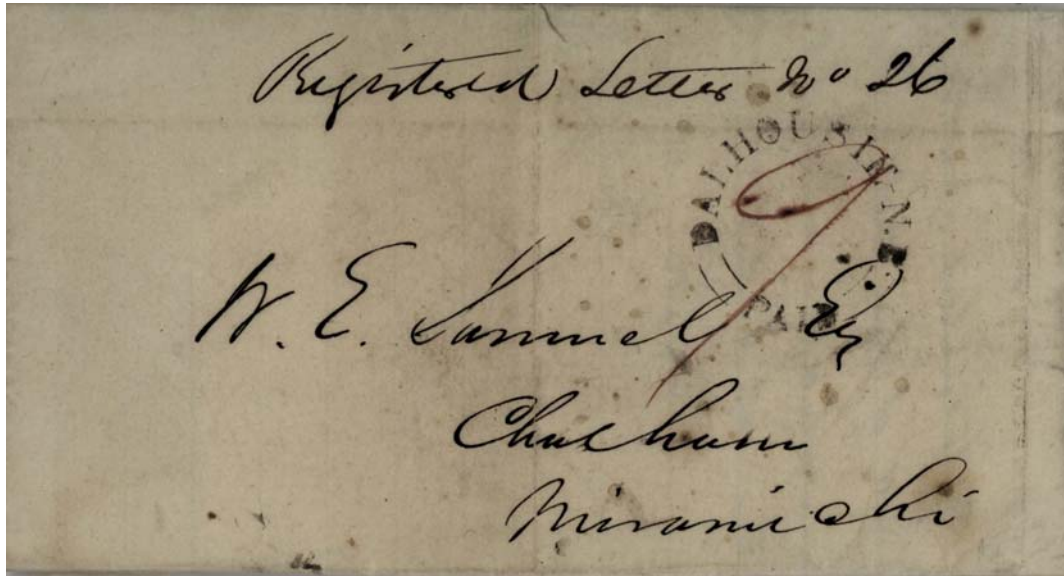 Registered Letter No 26
DALHOUSIE N.B
PAID
9
W. E. Samuel Esq
Chatham
Miramichi